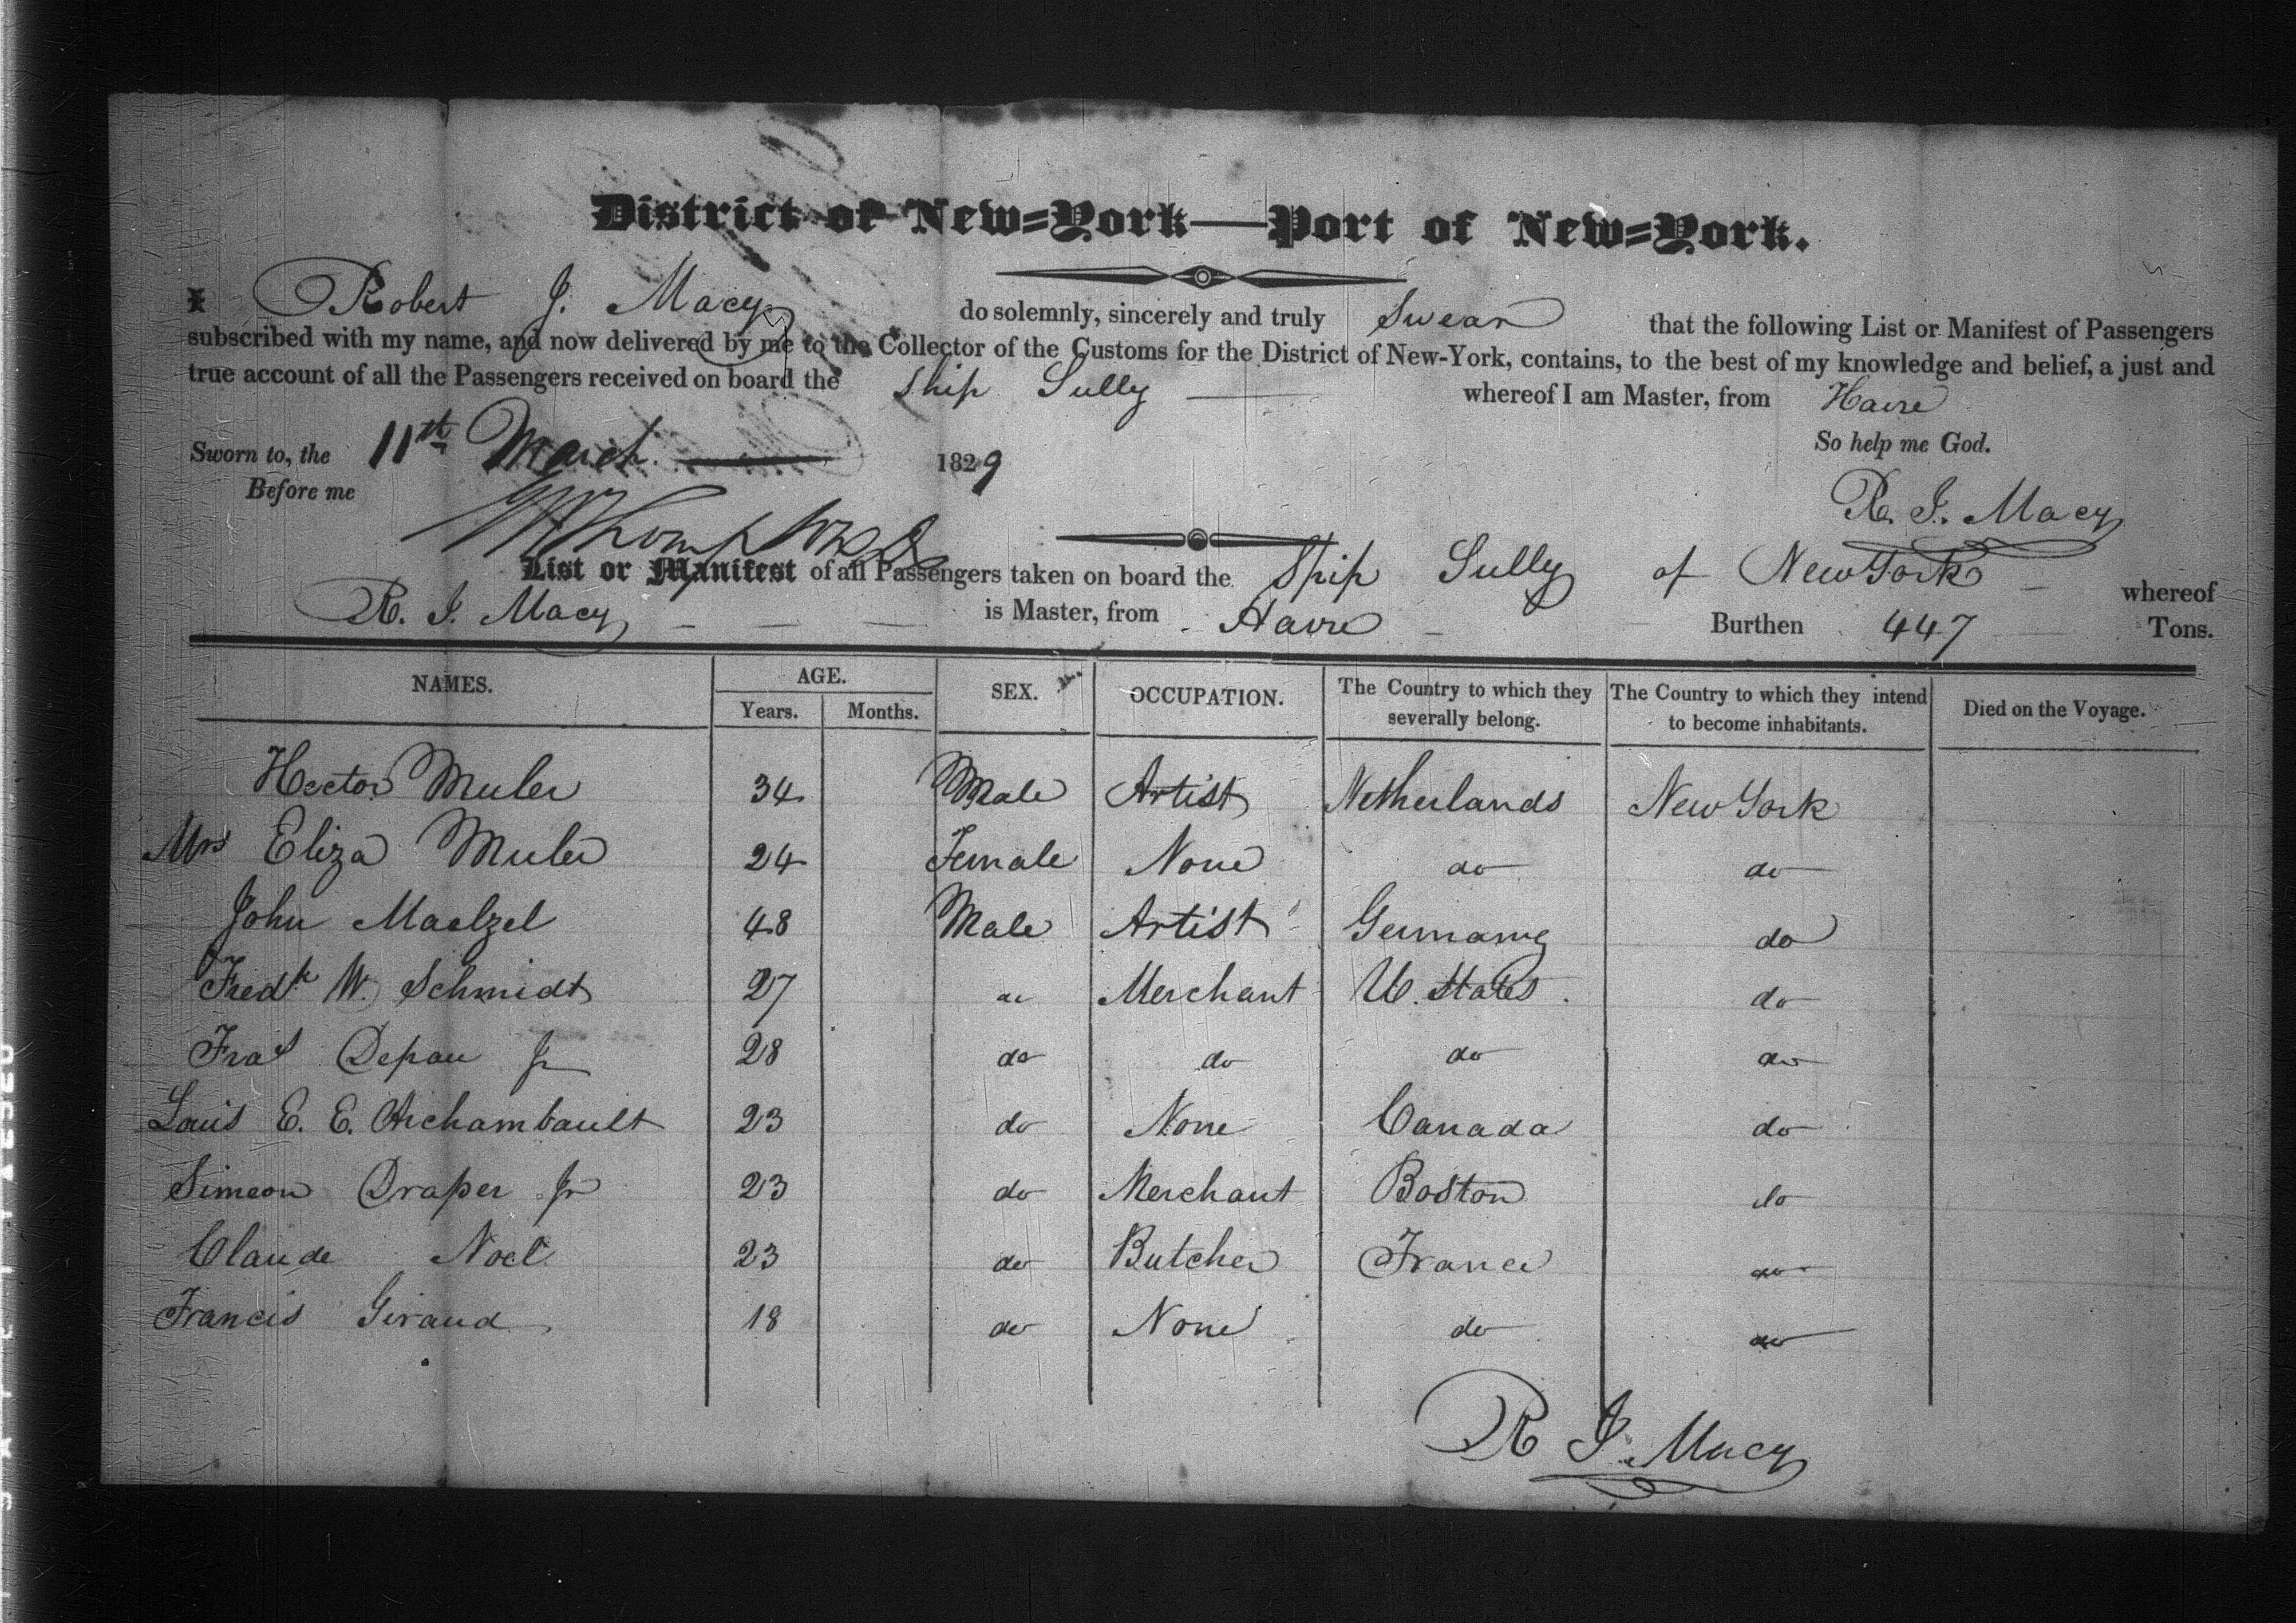 District of New=York—Port of New=York.
I Robert J. Macy do solemnly, sincerely and truly Swear that the following List or Manifest of Passengers
subscribed with my name, and now delivered by me to the Collector of the Customs for the District of New-York, contains, to the best of my knowledge and belief, a just and
true account of all the Passengers received on board the Ship Sully whereof I am Master, from Havre
So help me God.
Sworn to, the 11th March 1829
Before me
R. J. Macy
List or Manifest of all Passengers taken on board the Ship Sully of New York whereof
R. J. Macy is Master, from Havre Burthen 447 Tons.
NAMES. AGE. Years. Months. SEX. OCCUPATION. The Country to which they severally belong. The Country to which they intend to become inhabitants. Died on the Voyage.
Hector Muler 34 Male Artist Netherlands New York
Mrs Eliza Muler 24 Female None do do
John Maelzel 48 Male Artist Germany do
Fredk W. Schmidt 27 do Merchant U. States do
Fras Depau Jr 28 do do do do
Louis E. E. Archambault 23 do None Canada do
Simeon Draper Jr 23 do Merchant Boston do
Claude Noel 23 do Butcher France do
Francis Giraud 18 do None do do
R J. Macy